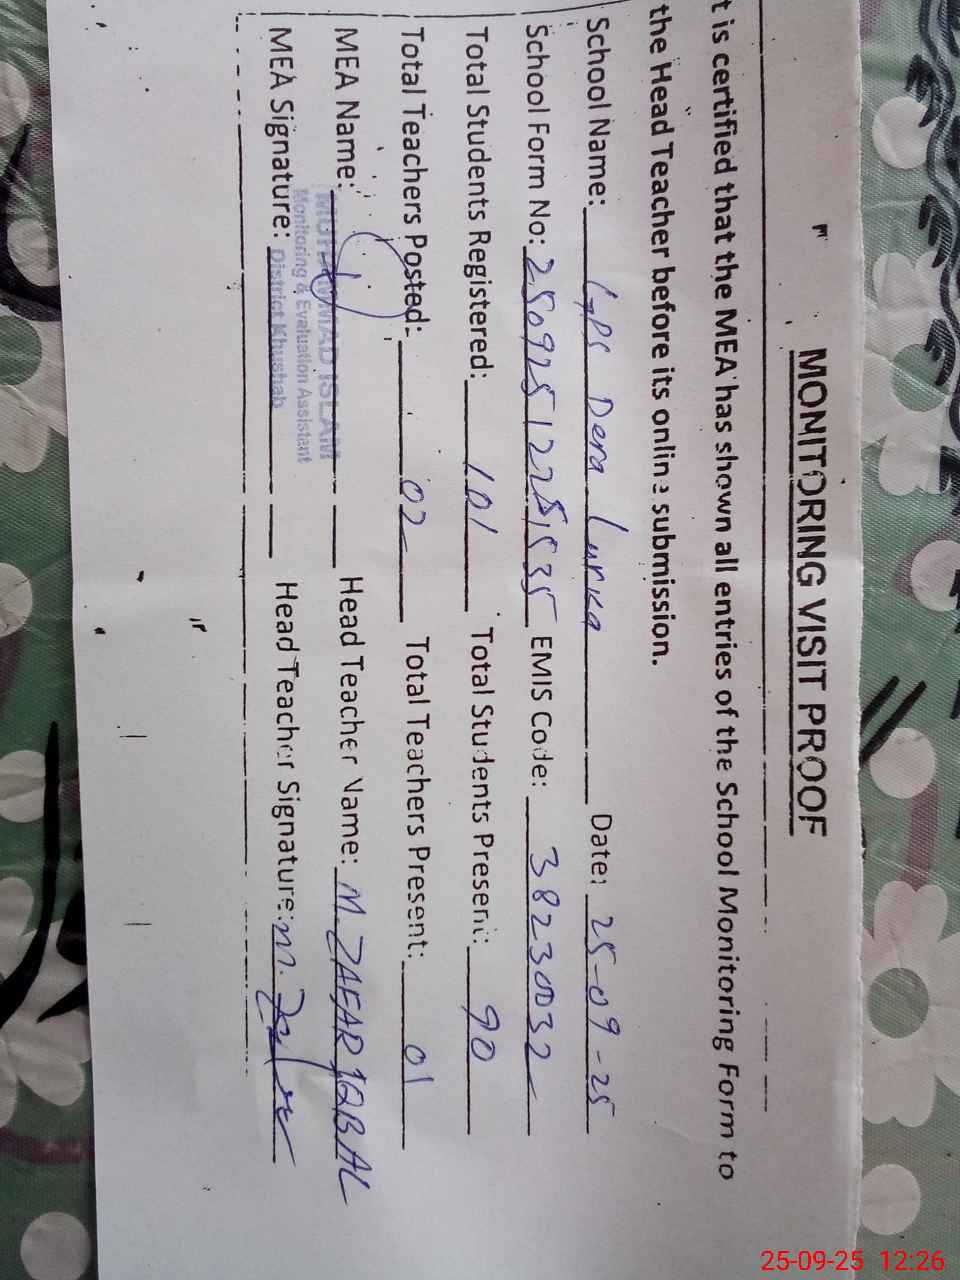 MONITORING VISIT PROOF
t is certified that the MEA has shown all entries of the School Monitoring Form to
the Head Teacher before its online submission.
School Name: GPS Dera Lurka Date: 25-09-25
School Form No: 25092512251535 EMIS Code: 38230032
Total Students Registered: 101 Total Students Present: 90
Total Teachers Posted: 02 Total Teachers Present: 01
MEA Name: MUHAMMAD ISLAM Head Teacher Name: M. ZAFAR IQBAL
Monitoring & Evaluation Assistant
MEA Signature: District Khushab Head Teacher Signature: M. Zafar
25-09-25 12:26